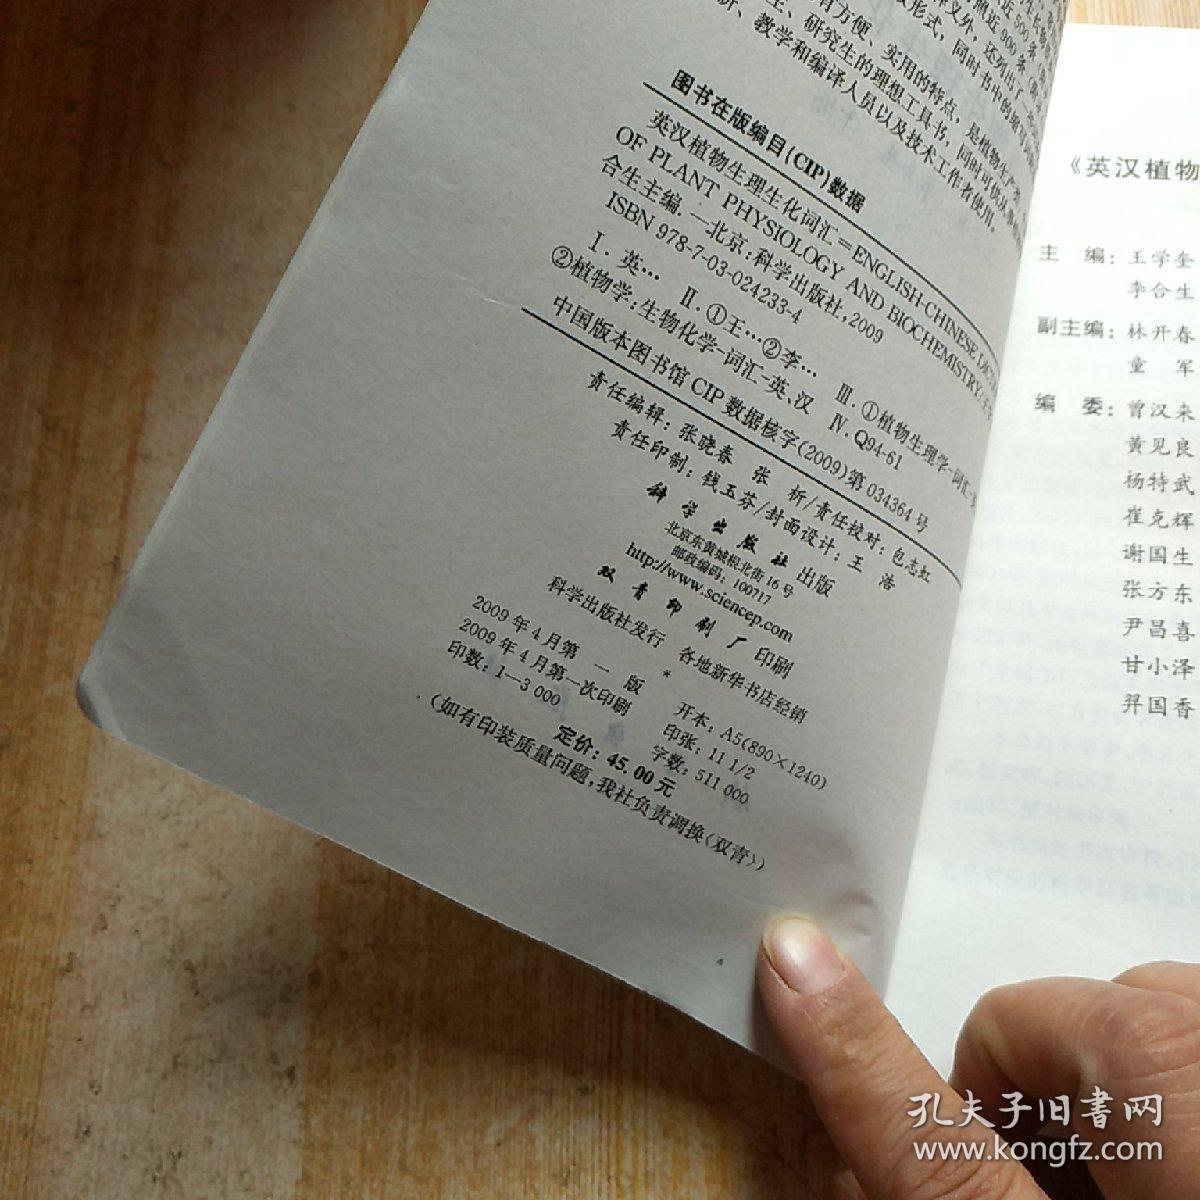 图书在版编目(CIP)数据
英汉植物生理生化词汇=ENGLISH-CHINESE
OF PLANT PHYSIOLOGY AND BIOCHEMISTRY
合生主编.—北京:科学出版社,2009
ISBN 978-7-03-024233-4
Ⅰ.英… Ⅱ.①王…②李… Ⅲ.①植物生理学-词汇-英
②植物学:生物化学-词汇-英、汉 Ⅳ.Q94-61
中国版本图书馆CIP数据核字(2009)第034364号
责任编辑:张晓春 张 析/责任校对:包志虹
责任印制:钱玉芬/封面设计:王 浩
科学出版社 出版
北京东黄城根北街16号
邮政编码:100717
http://www.sciencep.com
双青印刷厂 印刷
科学出版社发行 各地新华书店经销
*
2009年4月第 一 版 开本:A5(890×1240)
2009年4月第一次印刷 印张:11 1/2
印数:1—3 000 字数:511 000
定价:45.00元
(如有印装质量问题,我社负责调换〈双青〉)
《英汉植物
主 编:王学奎
李合生
副主编:林开春
童 军
编 委:曾汉来
黄见良
杨特武
崔克辉
谢国生
张方东
尹昌喜
甘小泽
羿国香
孔夫子旧书网
www.kongfz.com